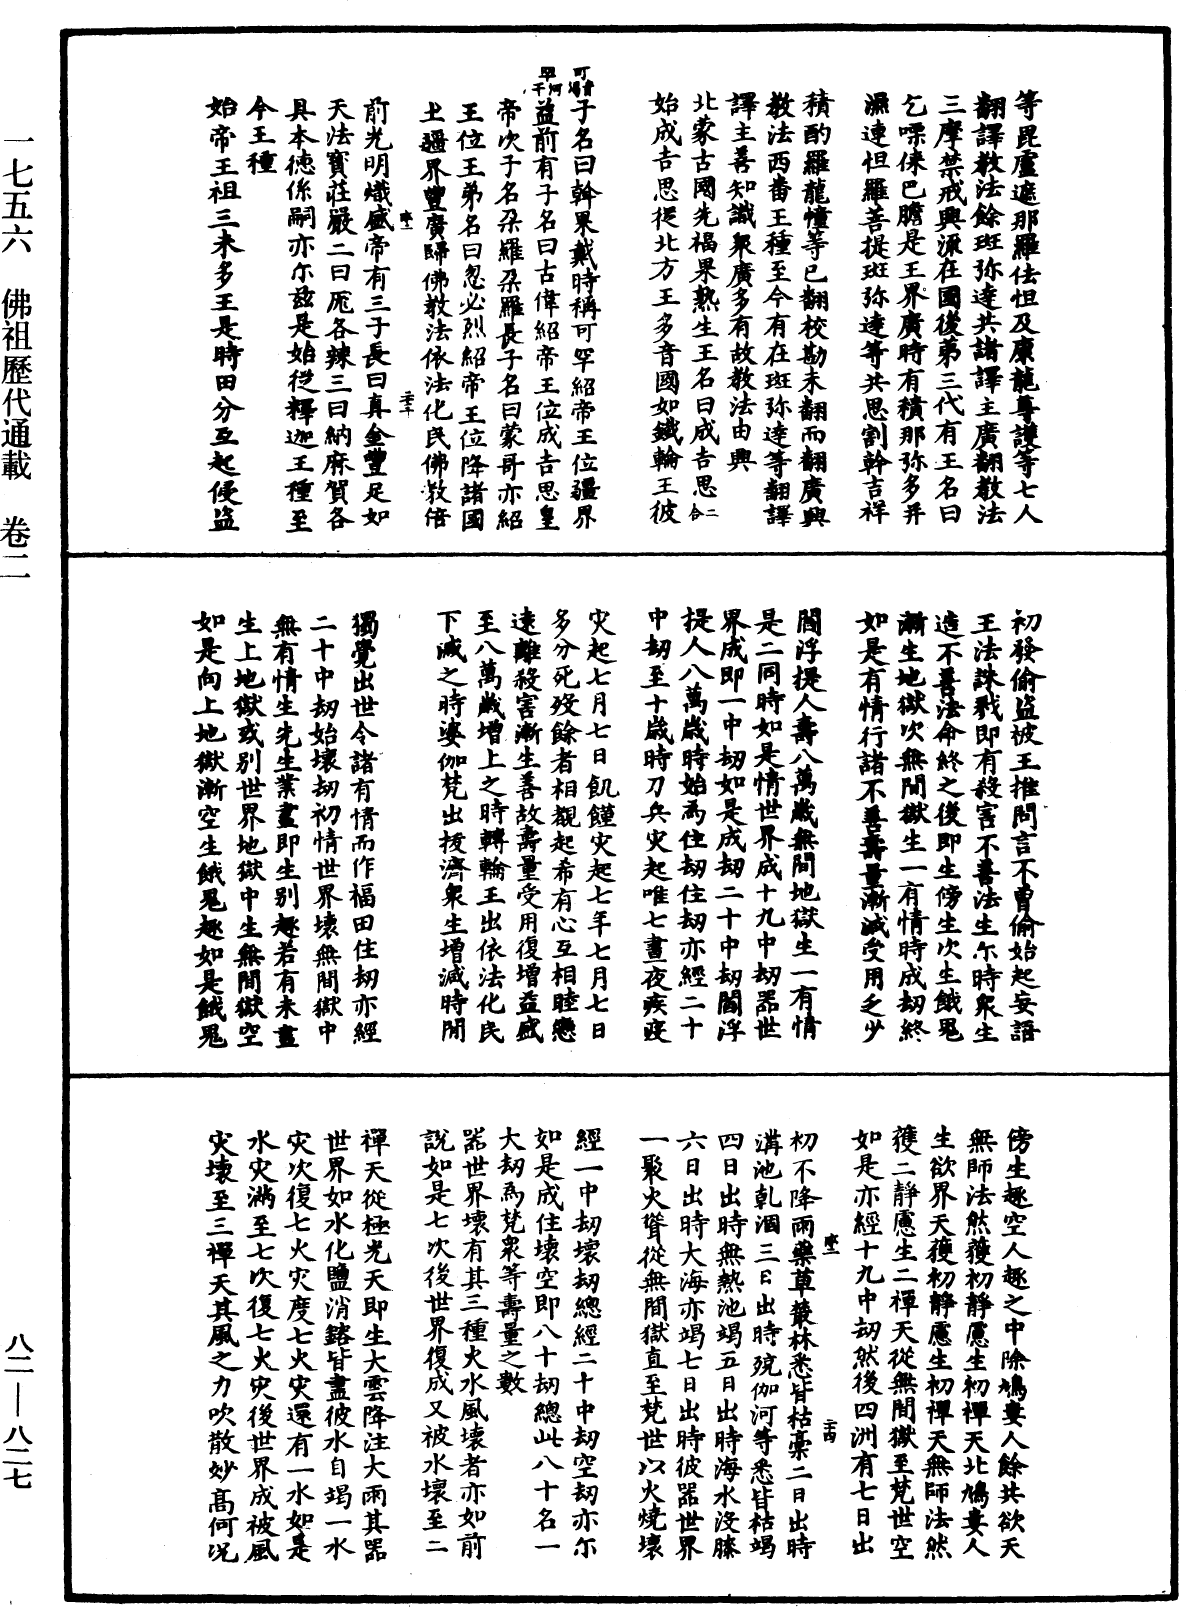 一七五六　佛祖歷代通載　卷二
八二—八二七
等毘盧遮那羅佉怛及康龍尊護等七人
翻譯教法餘班弥達共諸譯主廣翻教法
三摩禁戒興流在國後第三代有王名曰
乞㗚倈巴膽是王界廣時有積那弥多并
濕連怛羅菩提班弥達等共思割幹吉祥
積酌羅龍幢等已翻校勘未翻而翻廣興
教法西番王種至今有在班弥達等翻譯
譯主善知識衆廣多有故教法由興
北蒙古國先福果熟生王名曰成吉思二合
始成吉思從北方王多音國如鐵輪王彼
子名曰斡果戴時稱可罕紹帝王位疆界
益前有子名曰古偉紹帝王位成吉思皇
帝次子名朶羅朶羅長子名曰蒙哥亦紹
王位王弟名曰忽必烈紹帝王位降諸國
土疆界豐廣歸佛教法依法化民佛教倍
前光明熾盛帝有三子長曰真金豐足如
天法寶莊嚴二曰厖各辣三曰納麻賀各
具本德係嗣亦尔玆是始從釋迦王種至
今王種
始帝王祖三末多王是時田分互起侵盜
初發偷盜被王推問言不曾偷始起妄語
王法誅戮即有殺害不善法生尔時衆生
造不善法命終之後即生傍生次生餓鬼
漸生地獄次無間獄生一有情時成劫終
如是有情行諸不善壽量漸減受用乏少
閻浮提人壽八萬歲無間地獄生一有情
是二同時如是情世界成十九中劫器世
界成即一中劫如是成劫二十中劫閻浮
提人八萬歲時始為住劫住劫亦經二十
中劫至十歲時刀兵灾起唯七晝夜疾疫
灾起七月七日飢饉灾起七年七月七日
多分死歿餘者相覩起希有心互相睦戀
遠離殺害漸生善故壽量受用復增益盛
至八萬歲增上之時轉輪王出依法化民
下減之時婆伽梵出拔濟衆生增減時間
獨覺出世令諸有情而作福田住劫亦經
二十中劫始壞劫初情世界壞無間獄中
無有情生先生業盡即生別趣若有未盡
生上地獄或別世界地獄中生無間獄空
如是向上地獄漸空生餓鬼趣如是餓鬼
傍生趣空人趣之中除鳩婁人餘共欲天
無師法然獲初靜慮生初禪天北鳩婁人
生欲界天獲初靜慮生初禪天無師法然
獲二靜慮生二禪天從無間獄至梵世空
如是亦經十九中劫然後四洲有七日出
初不降雨藥草叢林悉皆枯槀二日出時
溝池乹涸三日出時殑伽河等悉皆枯竭
四日出時無熱池竭五日出時海水沒膝
六日出時大海亦竭七日出時彼器世界
一聚火聳從無間獄直至梵世以火燒壞
經一中劫壞劫總經二十中劫空劫亦尔
如是成住壞空即八十劫總此八十名一
大劫為梵衆等壽量之數
器世界壞有其三種火水風壞者亦如前
說如是七次後世界復成又被水壞至二
禪天從極光天即生大雲降注大雨其器
世界如水化鹽消鎔皆盡彼水自竭一水
灾次復七火灾度七火灾還有一水如是
水灾滿至七次復七火灾後世界成被風
灾壞至三禪天其風之力吹散妙高何况